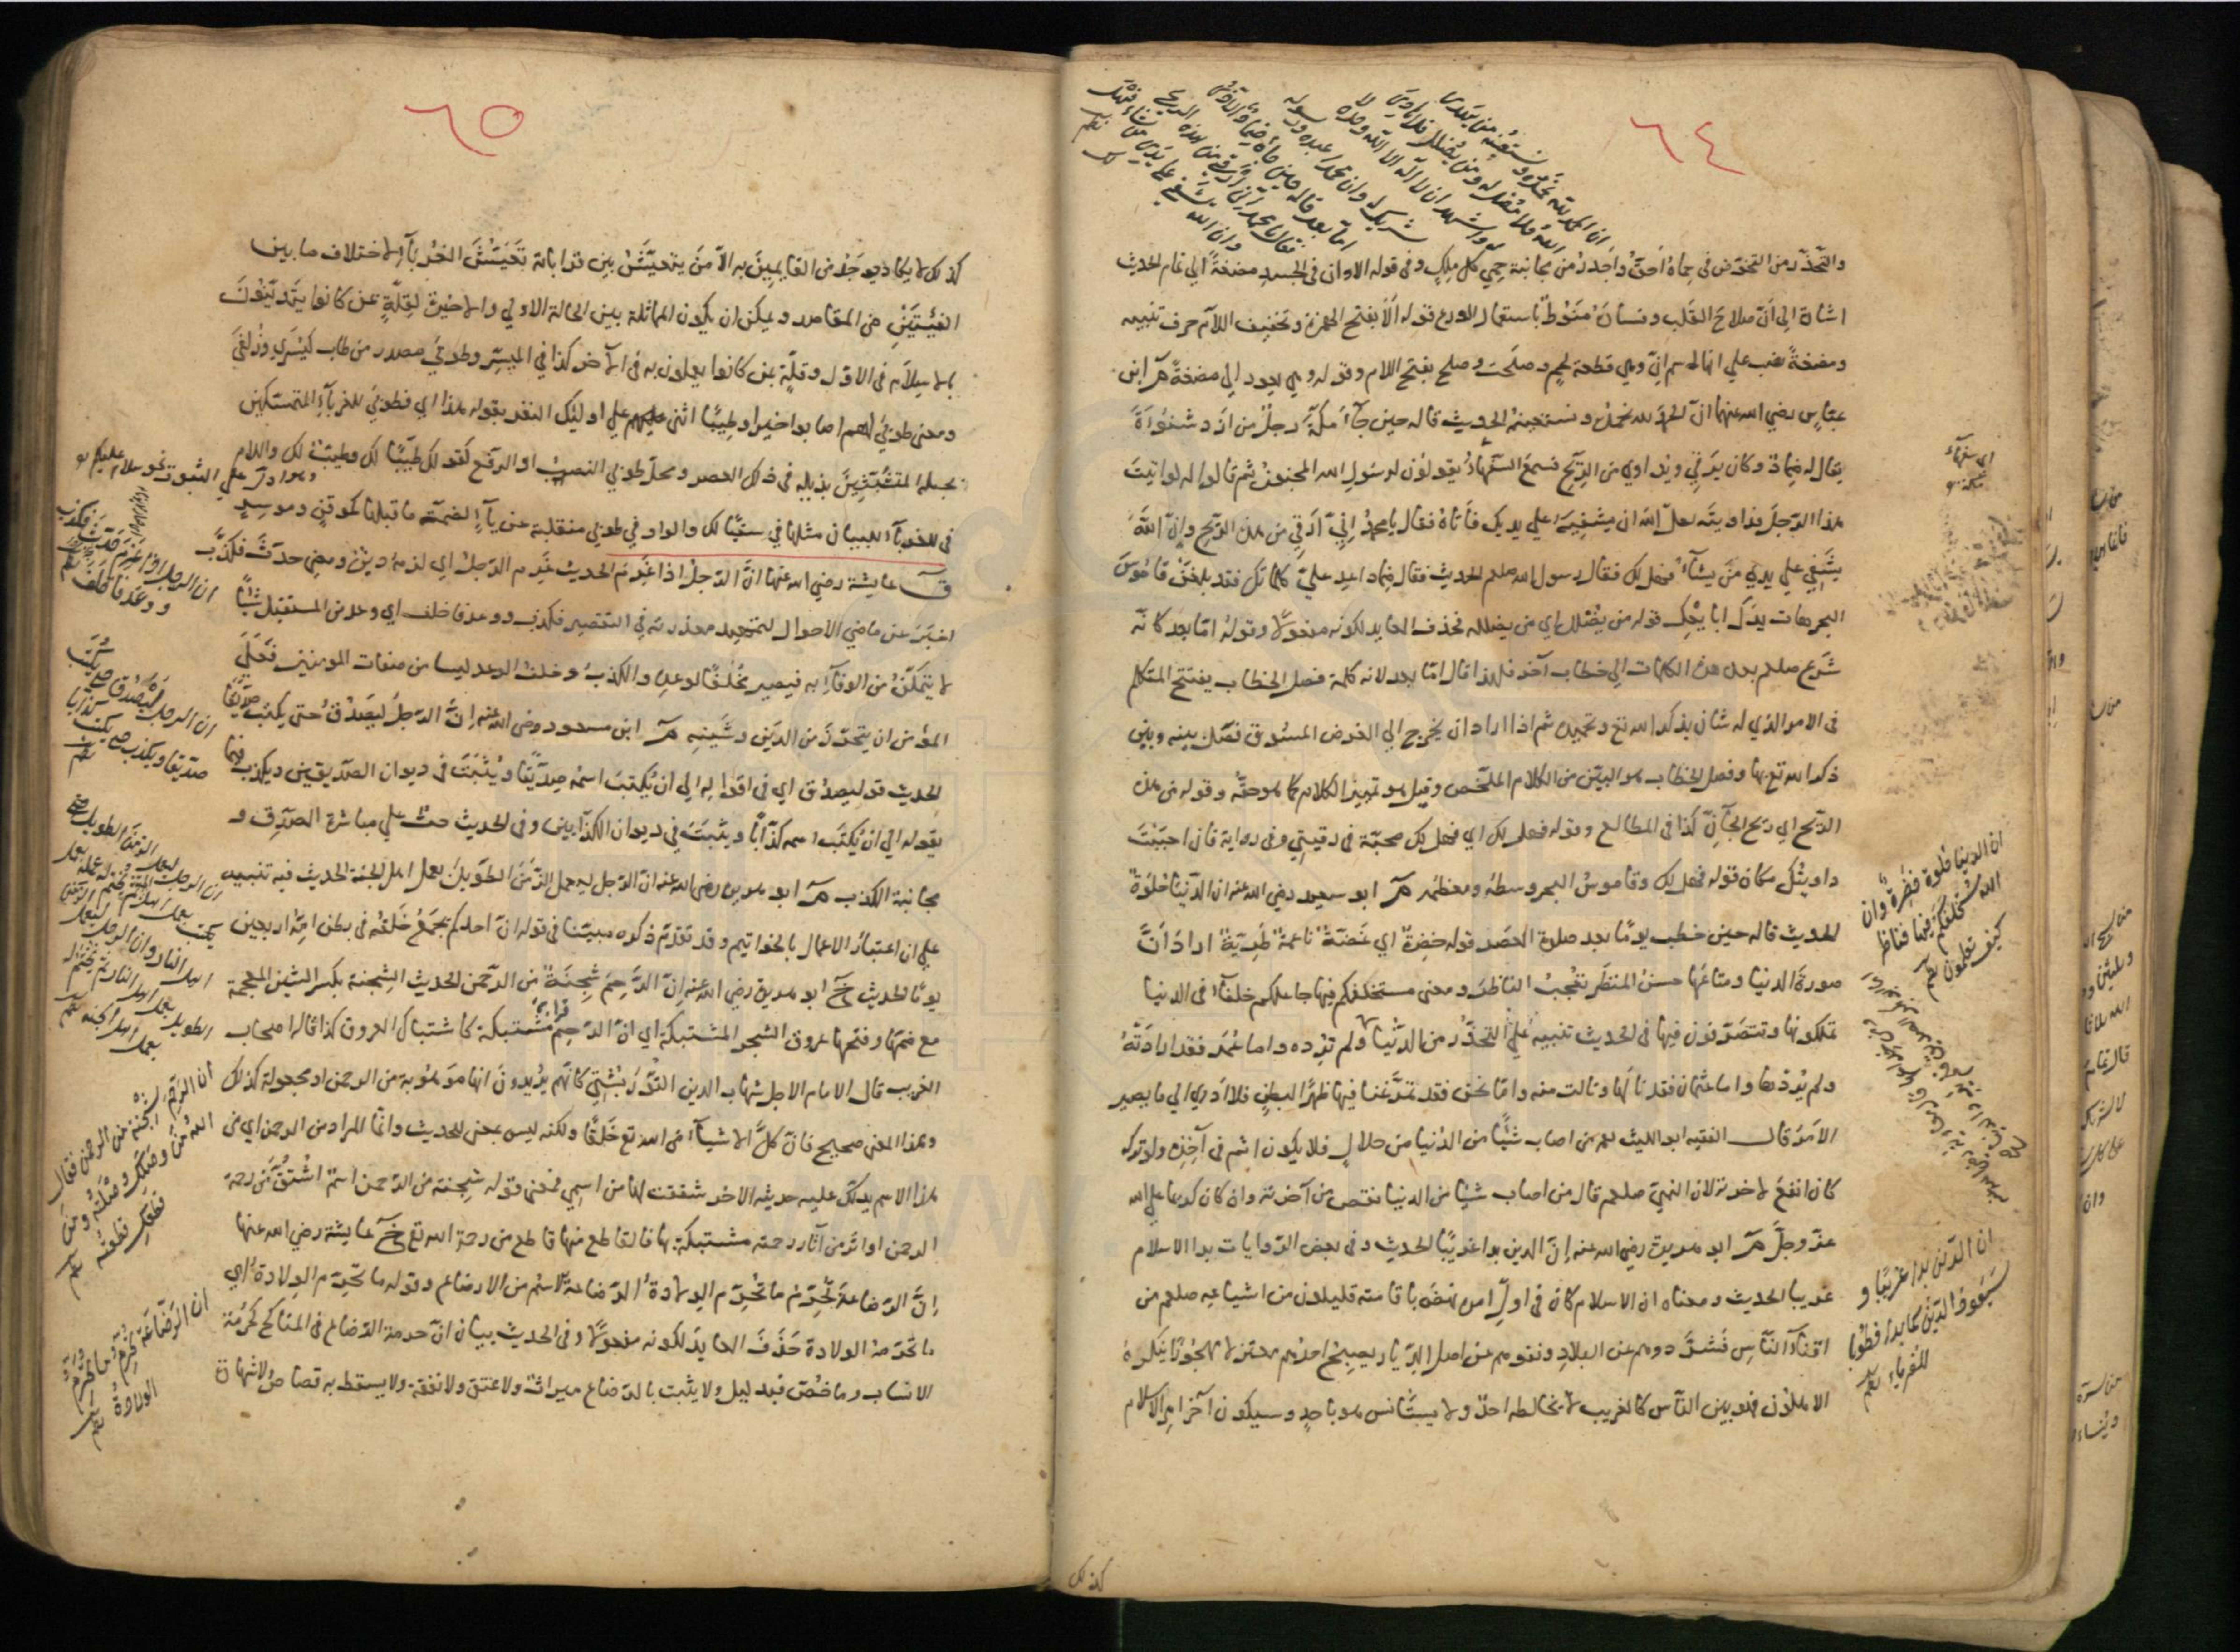 ٦٤
ان الحمد لله نحمده ونستعينه من يهدى
الله فلا مضل له ومن يضلل فلا هادى
له واشهد ان لا اله الا الله وحده لا
شريك له وان محمدا عبده ورسوله
اما بعد قاله حين جاء ضماد
فقال يا محمد انى ارقى من هذه الريح
وان الله يشفى على يدى من شاء فهل
لك
والتحذر من التخوض في حماه احق واجدر من مجانبة حمي كل ملك وفى قوله الا وان فى الجسد مضغة الي تمام الحديث
اشارة الى ان صلاح القلب وفساده منوط باستعمال الورع قوله الا بفتح الهمزة وتخفيف اللام حرف تنبيه
ومضغة نصب علي انها اسم ان وهي قطعة لحم وصلحت وصلح بفتح اللام وقوله وهي يعود الي مضغة م ابن
عباس رضي الله عنهما ان الحمد لله نحمده ونستعينه الحديث قاله حين جاء مكة رجل من ازد شنوءة
يقال له ضماد وكان يرقي ويداوي من الريح فسمع السفهاء يقولون لرسول الله المجنون ثم قالوا له لو اتيت
هذا الرجل فداويته لعل الله ان يشفيه علي يديك فاتاه فقال يا محمد اني ارقي من هذه الريح وان الله
يشفي علي يدي من يشاء فهل لك فقال رسول الله صلعم الحديث فقال ضماد اعد علي كلماتك فقد بلغن قاموس
البحر هات يدك ابايعك قوله من يضلل اي من يضلله فحذف العايد لكونه مفعولا وقوله اما بعد كانه
شرع صلعم بعد هذه الكلمات الي خطاب آخر فلهذا قال اما بعد لانه كلمة فصل الخطاب يفتتح المتكلم
فى الامر الذي له شان بذكر الله تع وتحميده ثم اذا اراد ان يخرج الي الغرض المسوق فصل بينه وبين
ذكر الله تع بها وفصل الخطاب هو البين من الكلام الملخص وقيل هو تمييز الكلام كما هو حقه وقوله من هذه
الريح اي ريح الجان كذا فى المطالع وقوله فهل لك اي فهل لك محبة فى رقيتي وفى رواية فان احببت
داويتك مكان قوله فهل لك وقاموس البحر وسطه ومعظمه م ابو سعيد رضي الله عنه ان الدنيا حلوة
الحديث قاله حين خطب يوما بعد صلوة العصر قوله خضرة اي غضة ناعمة طرية اراد ان
صورة الدنيا ومتاعها حسن المنظر تعجب الناظر ومعنى مستخلفكم فيها جاعلكم خلفاء فى الدنيا
تملكونها وتتصرفون فيها فى الحديث تنبيه علي التحذر من الدنيا ولم ترده واما عمر فقد ارادته
ولم يردها واما عثمان فقد نالها ونالت منه واما نحن فقد تمرغنا فيها ظهرا لبطن فلا ادري الي ما يصير
الامر قال الفقيه ابو الليث من اصاب شيئا من الدنيا من حلال فلا يكون اثم فى آخذه ولو تركه
كان انفع لاخرته لان النبى صلعم قال من اصاب شيئا من الدنيا نقص من آخرته وان كان كريما علي الله
عز وجل م ابو هريرة رضي الله عنه ان الدين بدا غريبا الحديث وفى بعض الروايات بدا الاسلام
غريبا الحديث ومعناه ان الاسلام كان فى اول امره نهض باقامته قليلون من اشياعه صلعم من
افناء الناس فشردوهم عن البلاد ونفوهم عن اهل الديار يصبح احدهم معتزلا مهجورا يكره
الاهلون فهو بين الناس كالغريب لا يخالطه احد ولا يستانس هو باحد وسيكون آخر امر الاسلام
كذلك
ان الدنيا حلوة خضرة وان
الله مستخلفكم فيها فناظر
كيف تعملون
ان الدين بدا غريبا و
سيعود الدين كما بدا فطوبى
للغرباء
٦٥
كذلك لا يكاد يوجد من القايمين به الا من يتعيش بين قراباته تعيش الغرباء الا اختلاف ما بين
الفئتين من المقاصد ويمكن ان يكون المماثلة بين الحالة الاولي والاخيرة لقلة من كانوا يتدينون
بالاسلام فى الاول وقلة من كانوا يعملون به فى الآخر كذا في الميسر وطوبي مصدر من طاب كبشري وزلفي
ومعنى طوبي لهم اصابوا خيرا وطيبا اثنى عليهم علي اولئك النفر بقوله هذا اي فطوبي للغرباء المتمسكين
بحبله المتشبثين بذيله فى ذلك العصر ومحل طوبي النصب او الرفع كقولك طيبا لك وطيب لك واللام
في للغرباء للبيان مثلها في سقيا لك والواو في طوبي منقلبة عن ياء لضمة ما قبلها كموقن وموسر
ق عايشة رضي الله عنها ان الرجل اذا غرم الحديث غرم الرجل اي لزمه دين ومعنى حدث فكذب
اخبر عن ماضي الاحوال لتمهيد معذرته في التقصير فكذب ووعد فاخلف اي وعد من المستقبل شيئا
لا يتمكن من الوفاء به فيصير مخلفا لوعده والكذب وخلف الوعد ليسا من صفات المومنين فعلي
المؤمن ان يتحرز من الدين وشينه م ابن مسعود رضي الله عنه ان الرجل ليصدق حتى يكتب صديقا
الحديث قوله ليصدق اي فى اقواله الي ان يكتب اسمه صديقا ويثبت فى ديوان الصديقين ويكذب فيما
يقوله الي ان يكتب اسمه كذابا ويثبت في ديوان الكذابين وفى الحديث حث علي مباشرة الصدق و
مجانبة الكذب م ابو هريرة رضى الله عنه ان الرجل ليعمل الزمن الطويل بعمل اهل الجنة الحديث فيه تنبيه
علي ان اعتبار الاعمال بالخواتيم وقد تقدم ذكره مبينا فى قوله ان احدكم يجمع خلقه فى بطن امه اربعين
يوما الحديث خ ابو هريرة رضي الله عنه ان الرحم شجنة من الرحمن الحديث الشجنة بكسر الشين المعجمة
مع ضمها وفتحها عروق الشجر المشتبكة اي ان الرحم قرابة مشتبكة كاشتباك العروق كذا قاله اصحاب
الغريب قال الامام الاجل شهاب الدين التوربشتي كانهم يريدون انها موهوبة من الرحمن او مجعولة كذلك
وهذا المعنى صحيح فان كل الاشياء من الله تع خلقا ولكنه ليس بمعنى للحديث وانما المراد من الرحمن اي من
هذا الاسم يدلك عليه حديثه الاخر شققت لها من اسمي فمعنى قوله شجنة من الرحمن اسم اشتق من رحمة
الرحمن او اثر من آثار رحمته مشتبكة بها فالقاطع منها قاطع من رحمة الله تع خ عايشة رضي الله عنها
ان الرضاعة تحرم ما تحرم الولادة الرضاعة الاسم من الارضاع وقوله ما تحرم الولادة اي
ما تحرمه الولادة حذف العايد لكونه مفعولا وفى الحديث بيان ان حرمة الرضاع فى المناكح كحرمة
الانساب وما خص فبدليل ولا يثبت بالرضاع ميراث ولا عتق ولا نفقة ولا يسقط به قصاص ولا شهادة
وهو ادل علي الثبوت نحو سلام عليكم
ان الرجل اذا غرم حدث فكذب
ووعد فاخلف
ان الرجل ليصدق حتى يكتب
صديقا ويكذب حتى يكتب كذابا
ان الرجل ليعمل الزمن الطويل
ان الرحم شجنة من الرحمن فقال
الله من وصلك وصلته ومن
قطعك قطعته
ان الرضاعة تحرم ما تحرم
الولادة